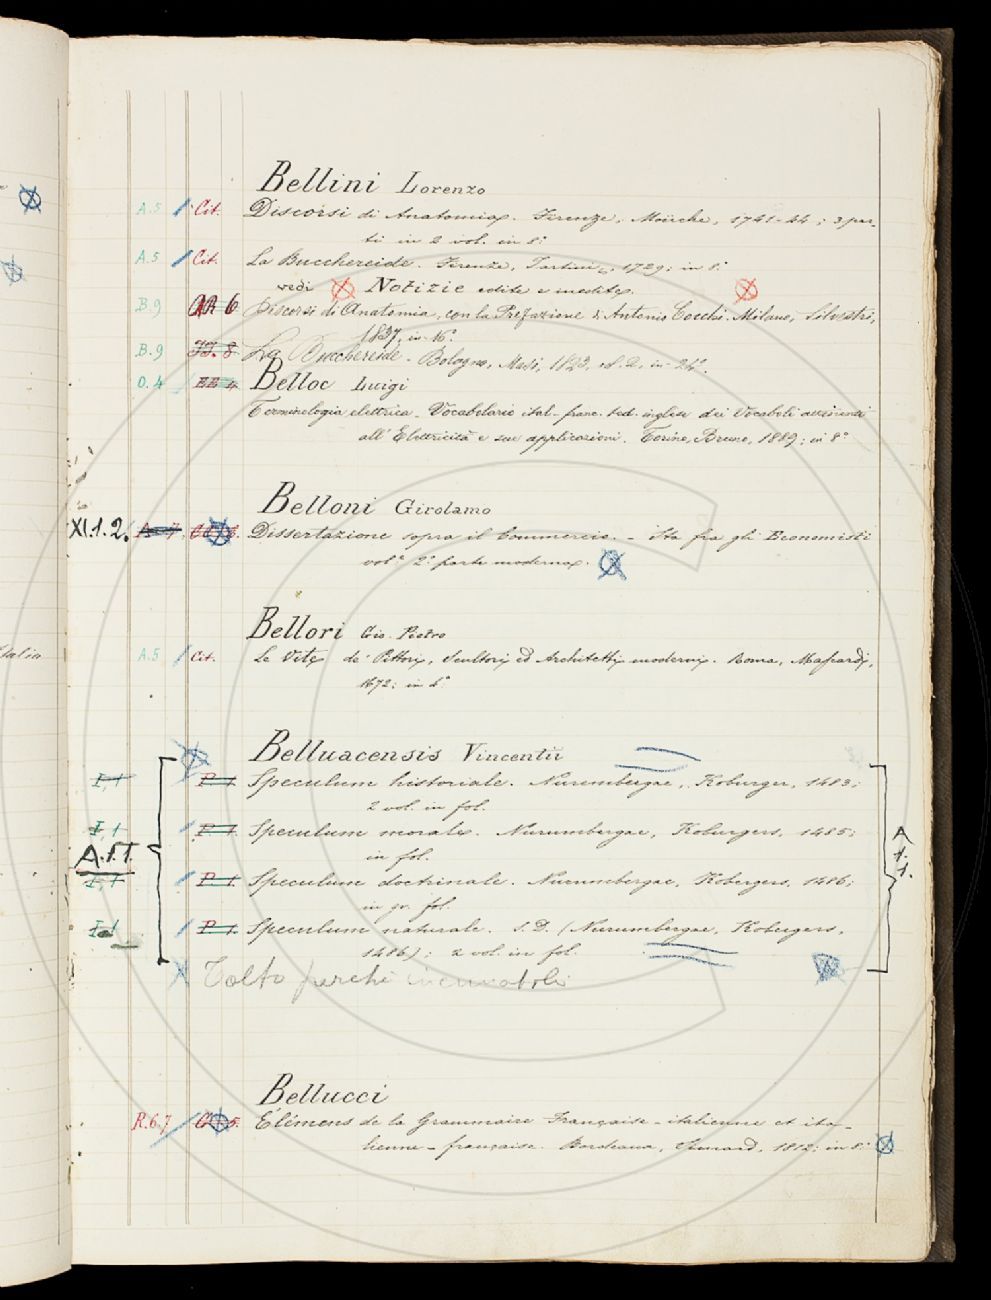 Bellini Lorenzo
A.5 Cit. Discorsi di Anatomia. Firenze, Moüche, 1741-44; 3 par-
ti in 2 vol. in 8°
A.5 Cit. La Bucchereide. Firenze, Tartini, 1729; in 8°
vedi Notizie edite e inedite.
B.9 6 Discorsi di Anatomia, con la Prefazione di Antonio Cocchi. Milano, Silvestri,
1837, in 16°
B.9 8 La Bucchereide. Bologna, Masi, 1823, in 24°.
Belloc Luigi
O.4 EE 4 Terminologia elettrica - Vocabolario ital-franc. ted. inglese dei Vocaboli attinenti
all'Elettricità e sue applicazioni. Torino, Bruno, 1889; in 8°
Belloni Girolamo
XI.1.2. A 7 Dissertazione sopra il Commercio. - Sta fra gli Economisti
vol° 2° parte moderna.
Bellori Gio. Pietro
A.5 Cit. Le Vite de' Pittori, Scultori ed Architetti moderni. Roma, Mascardi,
1672; in 4°
Belluacensis Vincentii
I,1 P.1. Speculum historiale. Nurembergae, Koburger, 1483;
2 vol. in fol.
I,1 P.1. Speculum morale. Nurumbergae, Koburgers, 1485;
in fol.
A.1.1. A.1.1.
I,1 P.1. Speculum doctrinale. Nurumbergae, Kobergers, 1486;
in gr. fol.
I,1 P.1. Speculum naturale. S.D. (Nurumbergae, Kobergers,
1486); 2 vol. in fol.
Tolto perchè incunaboli
Bellucci
R.6.7 5. Élémens de la Grammaire Française-italienne et ita-
lienne-française. Bordeaux, 1812; in 8°